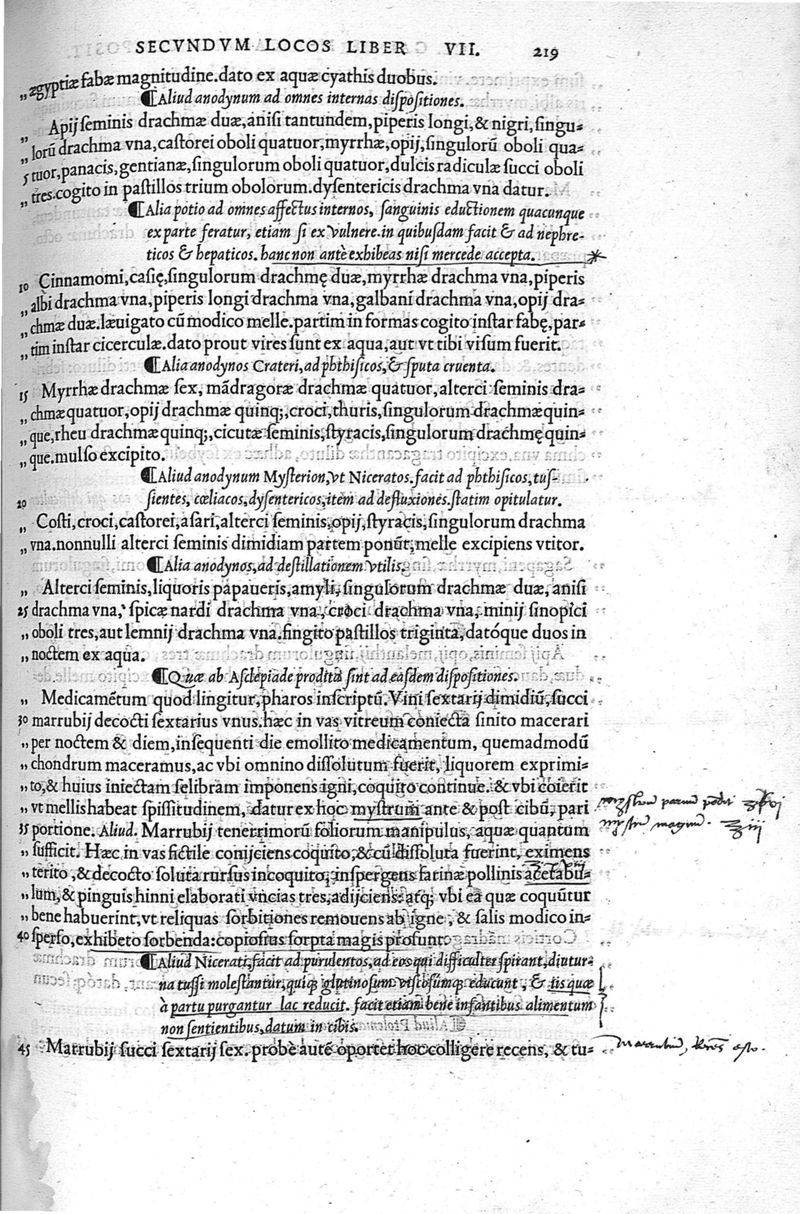 SECVNDVM LOCOS LIBER VII. 219
„ ægyptiæ fabæ magnitudine.dato ex aquæ cyathis duobus.
¶Aliud anodynum ad omnes internas dispositiones.
„ Apij seminis drachmæ duæ,anisi tantundem,piperis longi,& nigri,singu-
„ lorū drachma vna,castorei oboli quatuor,myrrhæ,opij,singulorū oboli qua-
5 tuor,panacis,gentianæ,singulorum oboli quatuor,dulcis radiculæ succi oboli
„ tres.cogito in pastillos trium obolorum.dysentericis drachma vna datur.
¶Alia potio ad omnes affectus internos, sanguinis eductionem quacunque
ex parte feratur, etiam si ex vulnere.in quibusdam facit & ad nephre-
ticos & hepaticos. hanc non antè exhibeas nisi mercede accepta. *
10 Cinnamomi,casię,singulorum drachmę duæ,myrrhæ drachma vna,piperis
„ albi drachma vna,piperis longi drachma vna,galbani drachma vna,opij dra-
„ chmæ duæ.læuigato cū modico melle.partim in formas cogito instar fabę,par-
„ tim instar cicerculæ.dato prout vires sunt ex aqua,aut vt tibi visum fuerit.
¶Alia anodynos Crateri,ad phthisicos,& sputa cruenta.
15 Myrrhæ drachmæ sex, mādragoræ drachmæ quatuor,alterci seminis dra-
„ chmæ quatuor,opij drachmæ quinq;,croci,thuris,singulorum drachmæ quin-
„ que,rheu drachmæ quinq;,cicutæ seminis,styracis,singulorum drachmę quin-
„ que.mulso excipito.
¶Aliud anodynum Mysterion,vt Niceratos.facit ad phthisicos,tus-
20 sientes, cœliacos,dysentericos,item ad defluxiones.statim opitulatur.
„ Costi,croci,castorei,asari,alterci seminis,opij,styracis,singulorum drachma
„ vna.nonnulli alterci seminis dimidiam partem ponūt;melle excipiens vtitor.
¶Alia anodynos,ad destillationem vtilis.
„ Alterci seminis,liquoris papaueris,amyli,singulorum drachmæ duæ,anisi
25 drachma vna, spicæ nardi drachma vna, croci drachma vna, minij sinopici
„ oboli tres,aut lemnij drachma vna.fingito pastillos triginta,datóque duos in
„ noctem ex aqua.
¶Quæ ab Asclepiade prodita sint ad easdem dispositiones.
„ Medicamētum quod lingitur,pharos inscriptū.Vini sextarij dimidiū,succi
30 marrubij decocti sextarius vnus.hæc in vas vitreum coniecta sinito macerari
„ per noctem & diem,insequenti die emollito medicamentum, quemadmodū
„ chondrum maceramus,ac vbi omnino dissolutum fuerit, liquorem exprimi-
„ to,& huius iniectam selibram imponens igni,coquito continue. & vbi coierit
„ vt mellis habeat spissitudinem, datur ex hoc mystrum ante & post cibū, pari
mystrum parum
35 portione. Aliud. Marrubij tenerrimorū foliorum manipulus, aquæ quantum
mystrum magnum.
„ sufficit. Hæc in vas fictile conijciens coquito,& cū dissoluta fuerint, eximens
„ terito,& decocto soluta rursus incoquito,inspergens farinæ pollinis acetabu-
„ lum,& pinguis hinni elaborati vncias tres,adijciens.atq; vbi ea quæ coquūtur
„ bene habuerint,vt reliquas sorbitiones remouens ab igne, & salis modico in-
40 sperso,exhibeto sorbenda:copiosius sorpta magis prosunt.
¶Aliud Nicerati,facit ad purulentos,ad eos qui difficulter spirant,diutur-
na tussi molestantur,quiq; glutinosum viscosúmq; educunt, & iis quæ
à partu purgantur lac reducit. facit etiam bene infantibus alimentum
non sentientibus,datum in cibis.
45 Marrubij succi sextarij sex. probè autē oportet hoc colligere recens, & tu-